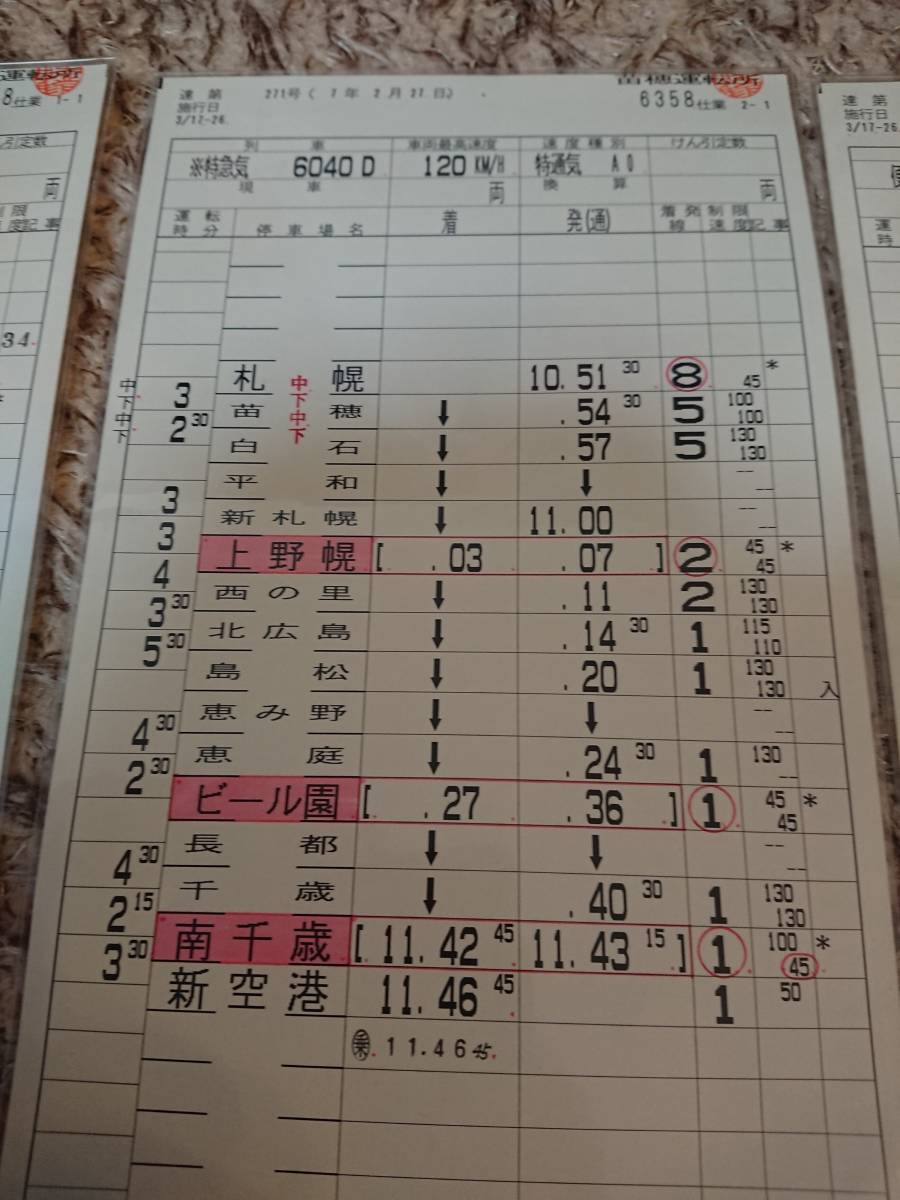 達 第 271号( 7 年 2 月 27 日)
苗穂運転所
施行日
3/17-26.
6358仕業 2-1
列 車 車両最高速度 速度種別 けん引定数
※特急気 6040 D 120 KM/H 特通気 A 0
現 車 両 換 算 両
運転時分 停車場名 着 発(通) 着発線 制限速度 記事
札 幌 10.51 30 8 45 *
中下 3 中下
苗 穂 ↓ .54 30 5 100 100
中下 2 30 中下
白 石 ↓ .57 5 130 130
平 和 ↓ ↓ -- --
3
新札幌 ↓ 11.00 -- --
3
上野幌 [ .03 .07 ] 2 45 45 *
4
西の里 ↓ .11 2 130 130
3 30
北広島 ↓ .14 30 1 115 110
5 30
島 松 ↓ .20 1 130 130 入
恵み野 ↓ ↓ -- --
4 30
恵 庭 ↓ .24 30 1 130 --
2 30
ビール園 [ .27 .36 ] 1 45 45 *
長 都 ↓ ↓ -- --
4 30
千 歳 ↓ .40 30 1 130 130
2 15
南千歳 [ 11.42 45 11.43 15 ] 1 100 45 *
3 30
新空港 11.46 45 1 50
乗.11.46 45.
8仕業 1-1
引定数
両
制限
速度記事
34.
達 第
施行日
3/17-26.
運
時